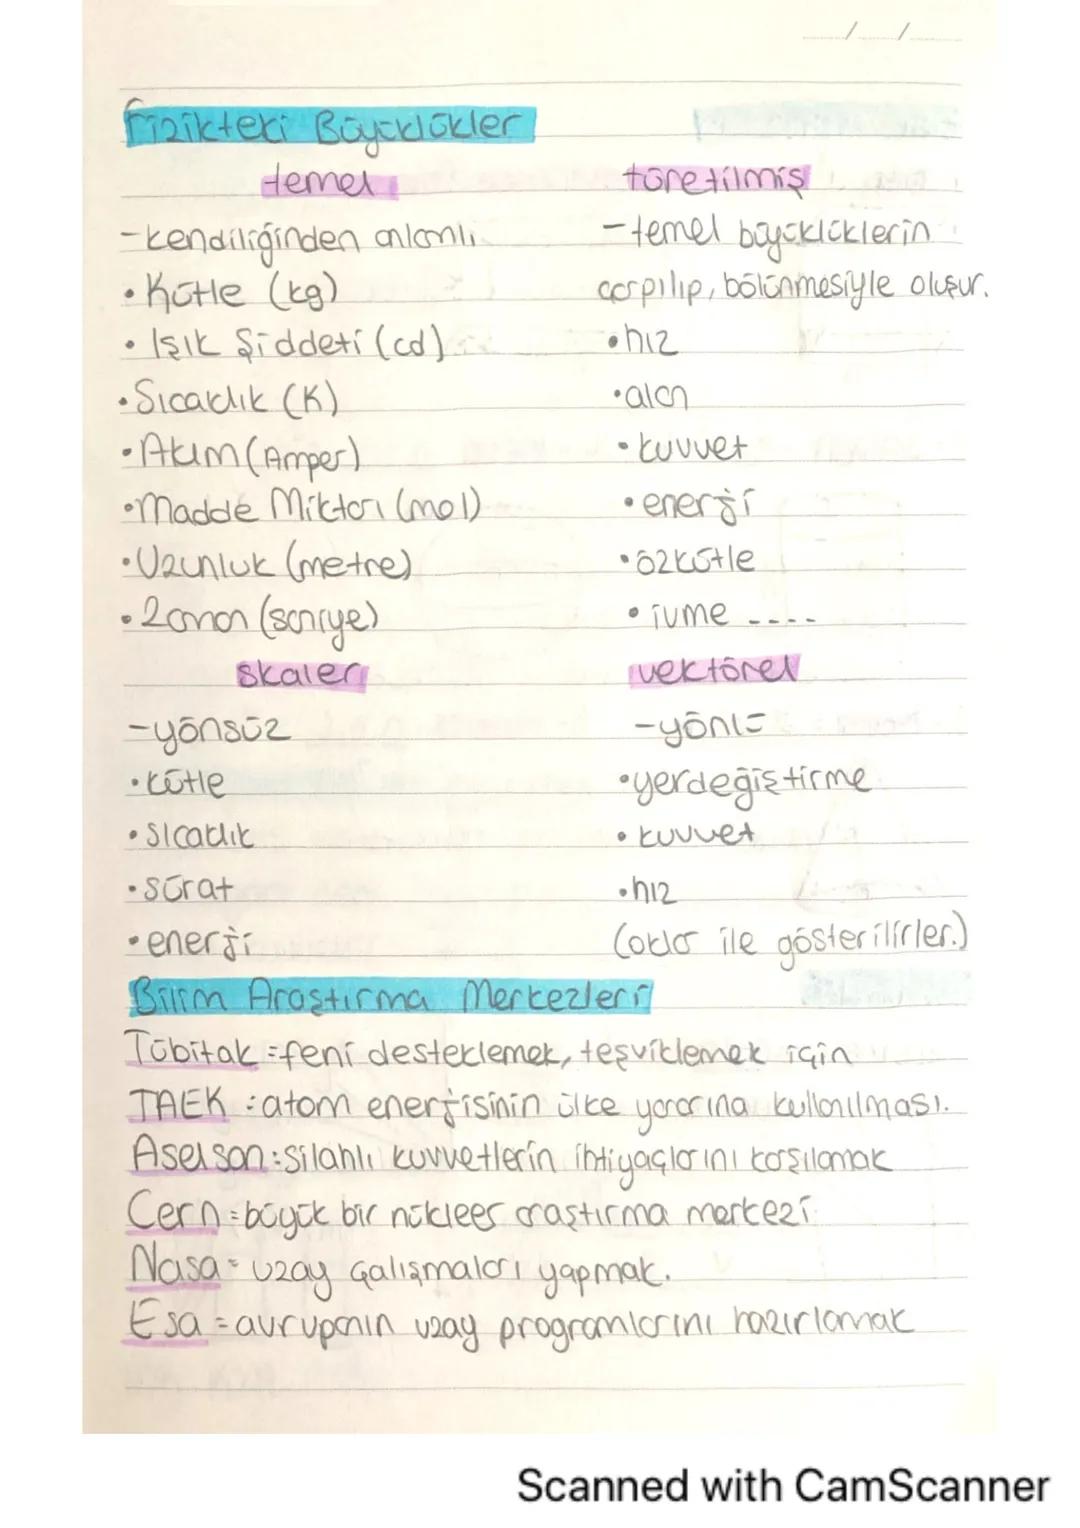 Fizikteki Büyüklükler
temel
türetilmiş
-kendiliğinden anlamlı
-temel büyüklüklerin
• Kütle (kg)
çarpılıp, bölünmesiyle oluşur.
• Işık Şiddeti (cd)
• hız
• Sıcaklık (K)
• alan
• Akım (Amper)
• kuvvet
• Madde Miktarı (mol)
• enerji
• Uzunluk (metre)
• özkütle
• Zaman (saniye)
• ivme ----
skaler
vektörel
-yönsüz
-yönlü
• kütle
• yerdeğiştirme
• sıcaklık
• kuvvet
• sürat
• hız
• enerji
(oklar ile gösterilirler.)
Bilim Araştırma Merkezleri
Tübitak = feni desteklemek, teşviklemek için
TAEK = atom enerjisinin ülke yararına kullanılması.
Aselsan = silahlı kuvvetlerin ihtiyaçlarını karşılamak
Cern = büyük bir nükleer araştırma merkezi
Nasa = uzay çalışmaları yapmak.
Esa = avrupanın uzay programlarını hazırlamak
Scanned with CamScanner